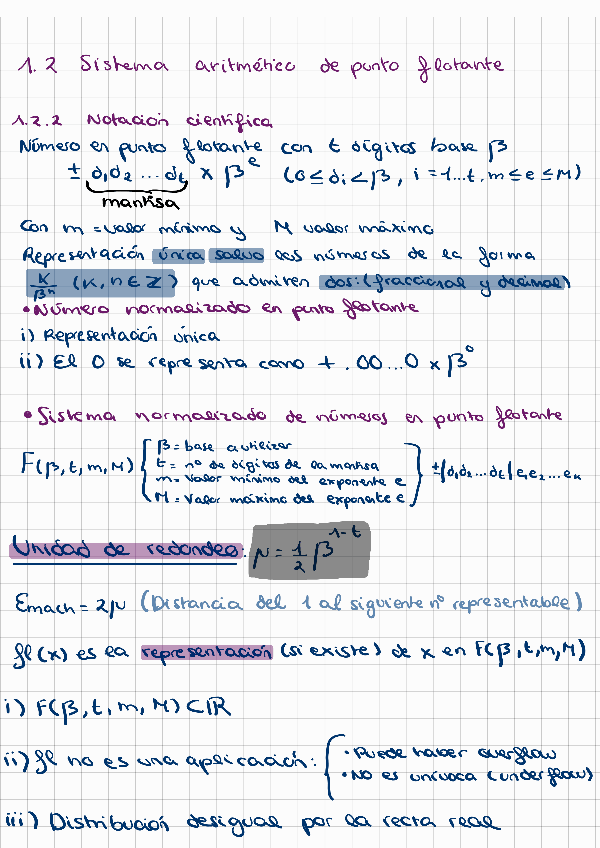 1.2 Sistema aritmético de punto flotante
1.2.2 Notación científica
Número en punto flotante con t dígitos base β
± d₁d₂ ... dₜ × βᵉ (0 ≤ dᵢ < β, i = 1...t, m ≤ e ≤ M)
mantisa
Con m = valor mínimo y M valor máximo
Representación única salvo los números de la forma
K/βⁿ (K, n ∈ Z) que admiten dos: (fraccional y decimal)
• Número normalizado en punto flotante
i) Representación única
ii) El 0 se representa como + .00...0 × β⁰
• Sistema normalizado de números en punto flotante
F(β, t, m, M) { β = base a utilizar
t = nº de dígitos de la mantisa
m = valor mínimo del exponente e
M = Valor máximo del exponente e } ±|d₁d₂...dₜ|e₁e₂...eₖ
Unidad de redondeo: μ = 1/2 β¹⁻ᵗ
Emach = 2μ (Distancia del 1 al siguiente nº representable)
fl(x) es la representación (si existe) de x en F(β, t, m, M)
i) F(β, t, m, M) ⊂ ℝ
ii) fl no es una aplicación: { • Puede haber overflow
• No es unívoca (underflow)
iii) Distribución desigual por la recta real